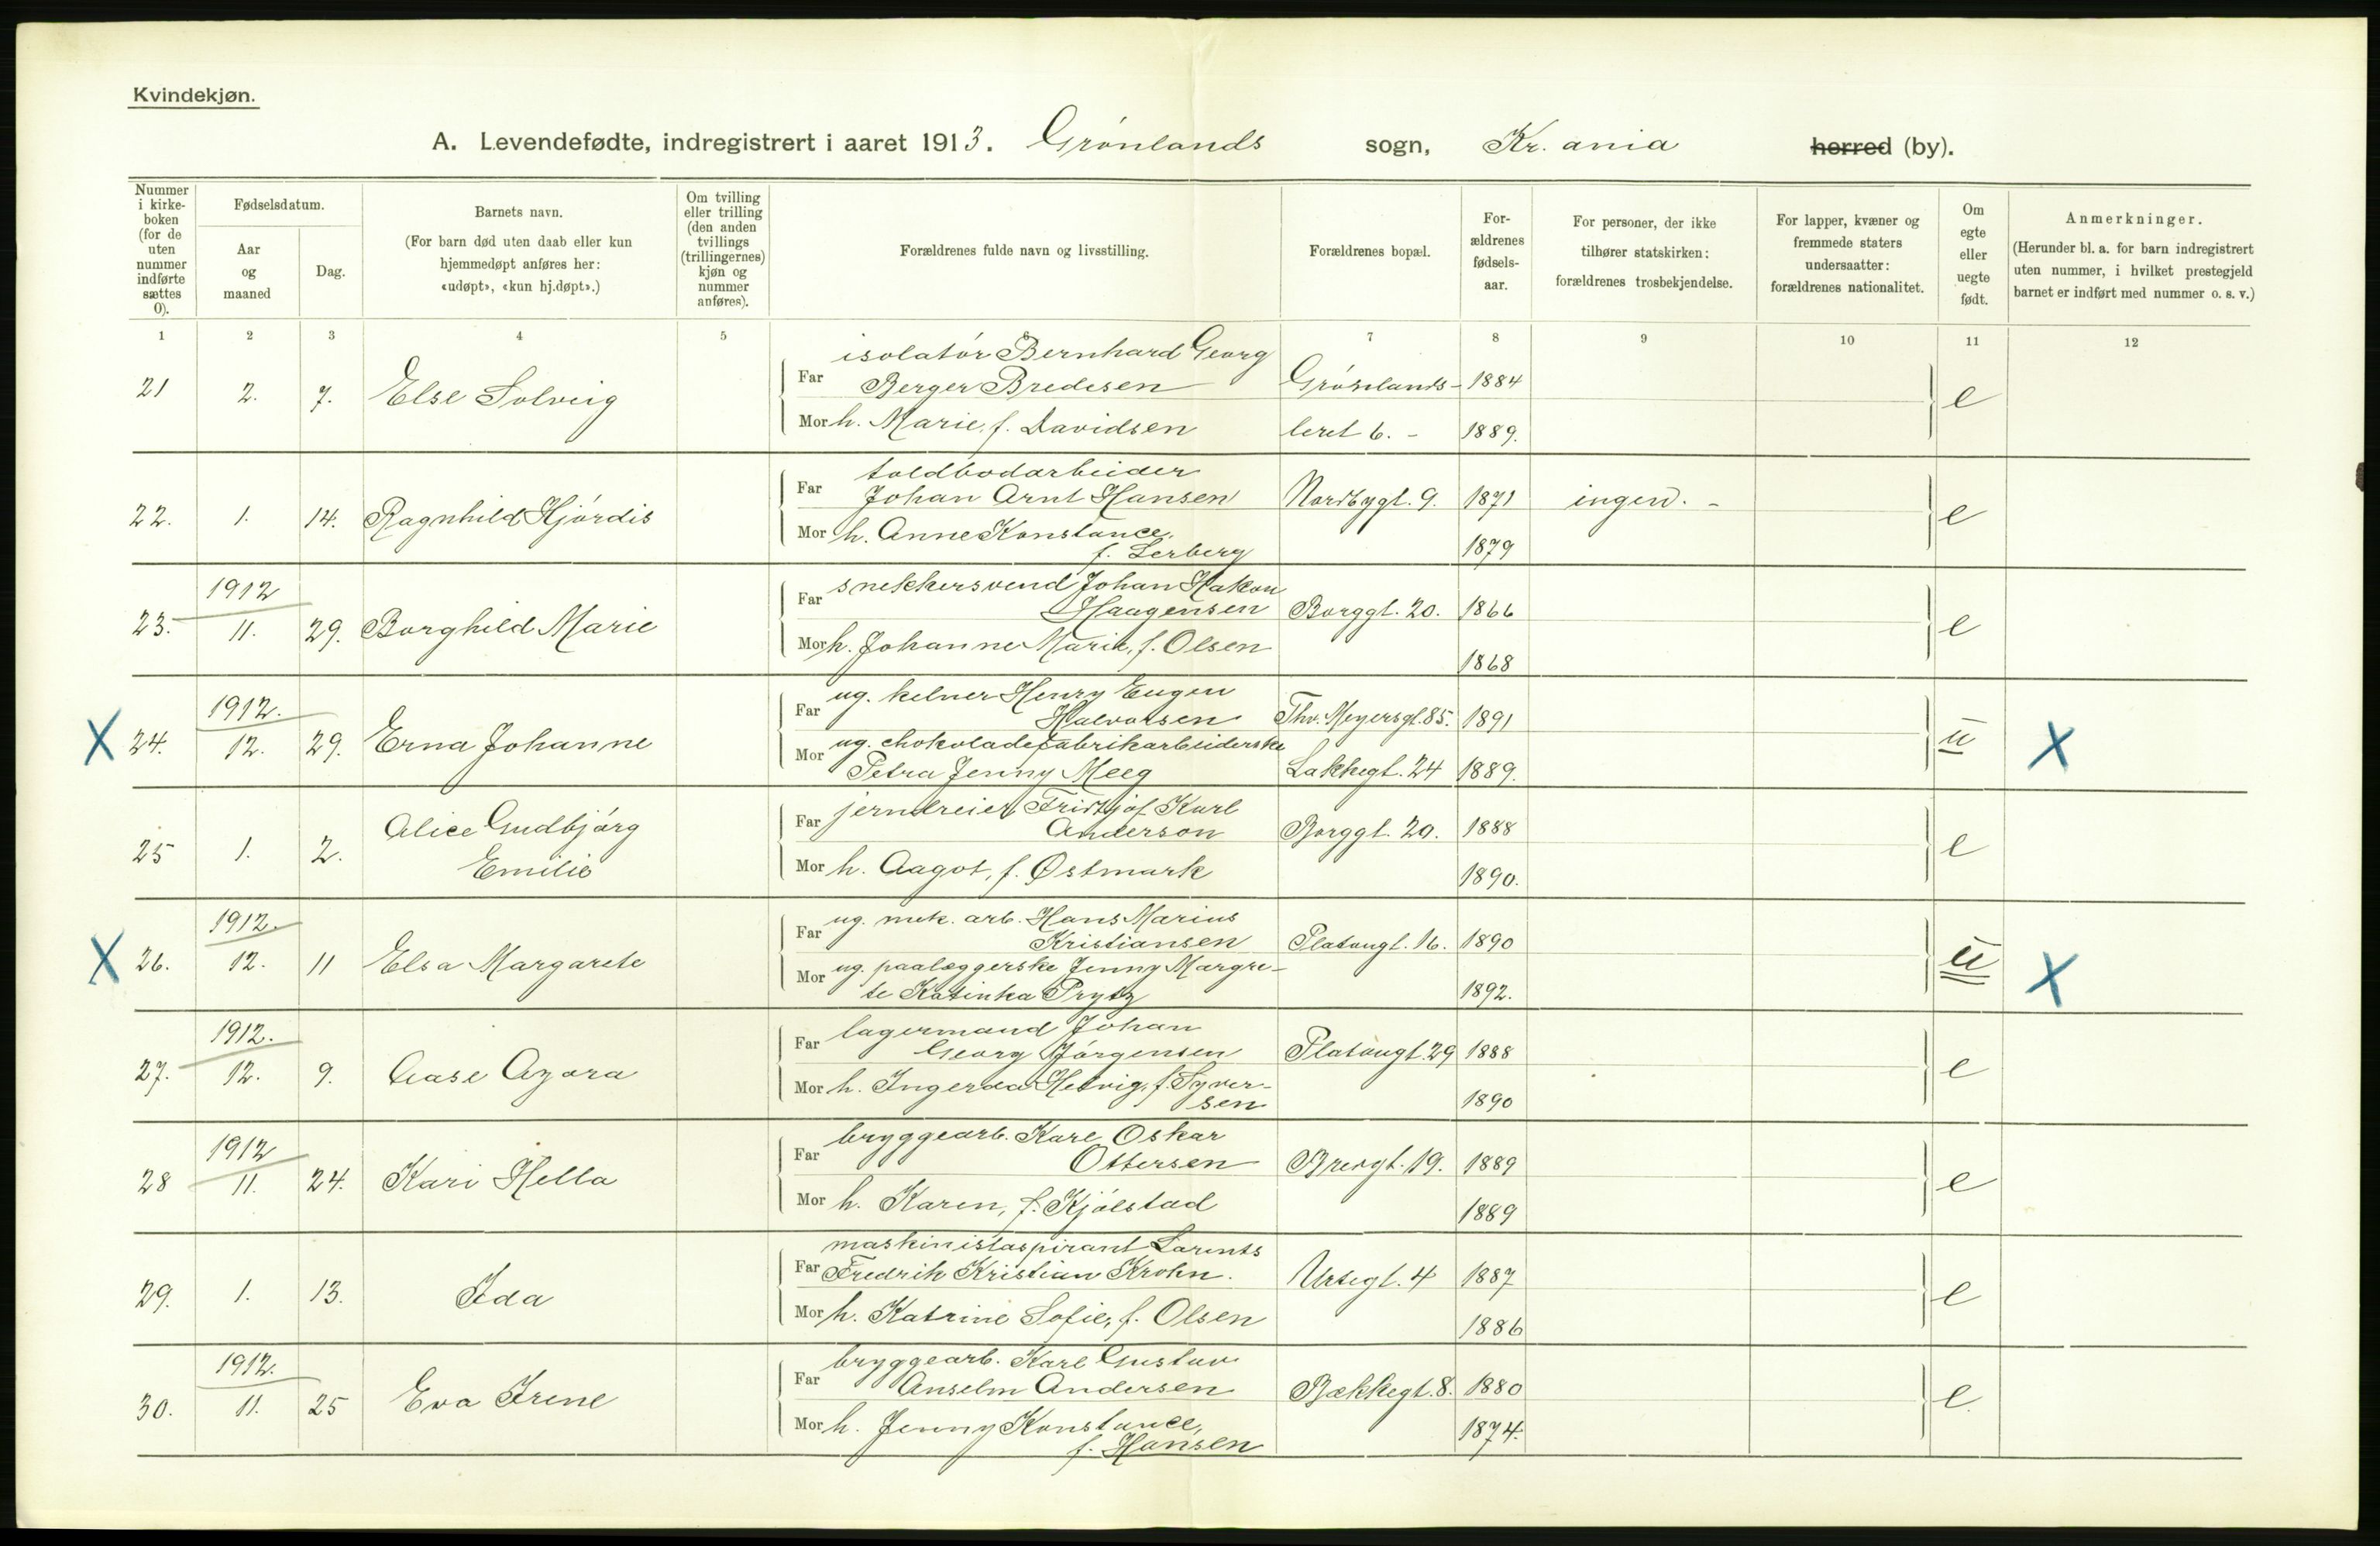 Kvindekjøn.
A. Levendefødte, indregistrert i aaret 1913. Grønlands sogn, Kr.ania herred (by).
Nummer i kirke- boken (for de uten nummer indførte sættes 0).
Fødselsdatum.
Aar og maaned
Dag.
Barnets navn.
(For barn død uten daab eller kun hjemmedøpt anføres her: «udøpt», «kun hj.døpt».)
Om tvilling eller trilling (den anden tvillings (trillingernes) kjøn og nummer anføres).
Forældrenes fulde navn og livsstilling.
Forældrenes bopæl.
For- ældrenes fødsels- aar.
For personer, der ikke tilhører statskirken: forældrenes trosbekjendelse.
For lapper, kvæner og fremmede staters undersaatter: forældrenes nationalitet.
Om egte eller uegte født.
Anmerkninger.
(Herunder bl. a. for barn indregistrert uten nummer, i hvilket prestegjeld barnet er indført med nummer o. s. v.)
1 2 3 4 5 6 7 8 9 10 11 12
isolatör Bernhard Georg
21 2. 7. Else Solveig Far Berger Bredesen Grönlands- 1884 e
Mor h. Marie, f. Davidsen leret 6. - 1889.
toldbodarbeider
22. 1. 14. Ragnhild Hjördis Far Johan Arnt Hansen Nordbygt. 9. 1871 ingen. - e
Mor h. Anne Konstance, 1879
f. Lerberg
1912 Far snekkersvend Johan Hakon
23. 11. 29. Borghild Marie Haagensen Borggt. 20. 1866 e
Mor h. Johanne Marie, f. Olsen 1868
1912. Far ug. kelner Henry Eugen
X 24. 12. 29. Erna Johanne Halvorsen Thv. Meyersgt. 85. 1891 u X
Mor ug. chokoladefabrikarbeiderske
Petra Jenny Meeg Lakkegt. 24 1889.
Far jerndreier Fridtjof Karl
25 1. 2. Alice Gudbjörg Anderson Borggt. 20. 1888 e
Emilie Mor h. Aagot, f. Østmark 1890.
1912. Far ug. mek. arb. Hans Marius
X 26. 12. 11 Elsa Margarete Kristiansen Platougt. 16. 1890 u X
Mor ug. paalæggerske Jenny Margre-
te Katinka Prytz 1892.
1912. Far lagermand Johan
27. 12. 9. Aase Azora Georg Jörgensen Platougt. 29 1888 e
Mor h. Ingerda Hedvig, f. Syver-
sen 1890
1912 Far bryggearb. Karl Oskar
28 11. 24. Kari Hella Ottersen Breigt. 19. 1889 e
Mor h. Karen, f. Kjölstad 1889
maskinistaspirant Lorents
29. 1. 13. Ida Far Fredrik Kristian Krohn. Urtegt. 4 1887 e
Mor h. Katrine Sofie, f. Olsen 1886
1912. bryggearb. Karl Gustav
30. 11. 25 Eva Irene Far Anselm Andersen Bækkegt. 8. 1880 e
Mor h. Jenny Konstance, 1874.
f. Hansen